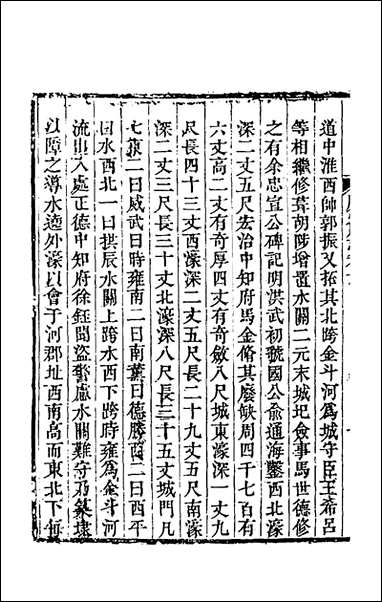 道中淮西帥郭振又拓其北跨金斗河爲城守臣王希呂
等相繼修葺胡陟增置水關二元末城圯僉事馬世德修
之有余忠宣公碑記明洪武初號國公俞通海鑿西北濠
深二丈五尺宏治中知府馬金脩其廢缺周四千七百有
六丈高二丈有奇厚四丈有奇斂八尺城東濠深一丈九
尺長四十三丈西濠深二丈五尺長二十九丈五尺南濠
深二丈三尺長三十丈北濠深八尺長三十五丈城門凡
七東二曰威武曰時雍南二曰南薰曰德勝西二曰西平
曰水西北一曰拱辰水關上跨水西下跨時雍爲金斗河
流出入處正德中知府徐鈺聞盜警慮水關難守乃築埭
以障之導水遶外濠以會于河郡址西南高而東北下每